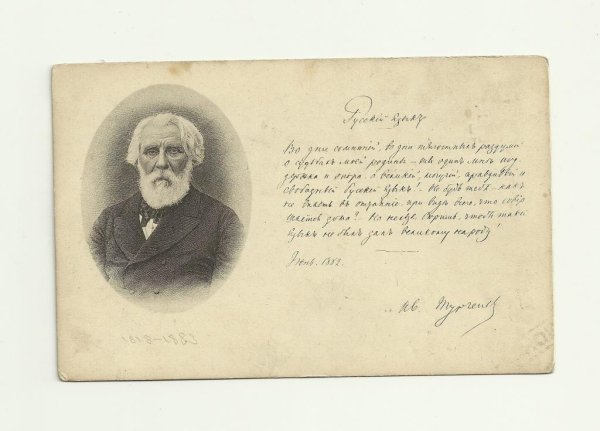 Русскій языкъ
Во дни сомнѣній, во дни тягостныхъ раздумій
о судьбахъ моей родины – ты одинъ мнѣ под-
держка и опора, о великій, могучій, правдивый и
свободный Русскій языкъ! Не будь тебя – какъ
не впасть въ отчаяніе при видѣ всего, что совер-
шается дома? Но нельзя вѣрить, чтобы такой
языкъ не былъ данъ великому народу!
Іюнь. 1882.
Ив. Тургеневъ
1818-1883